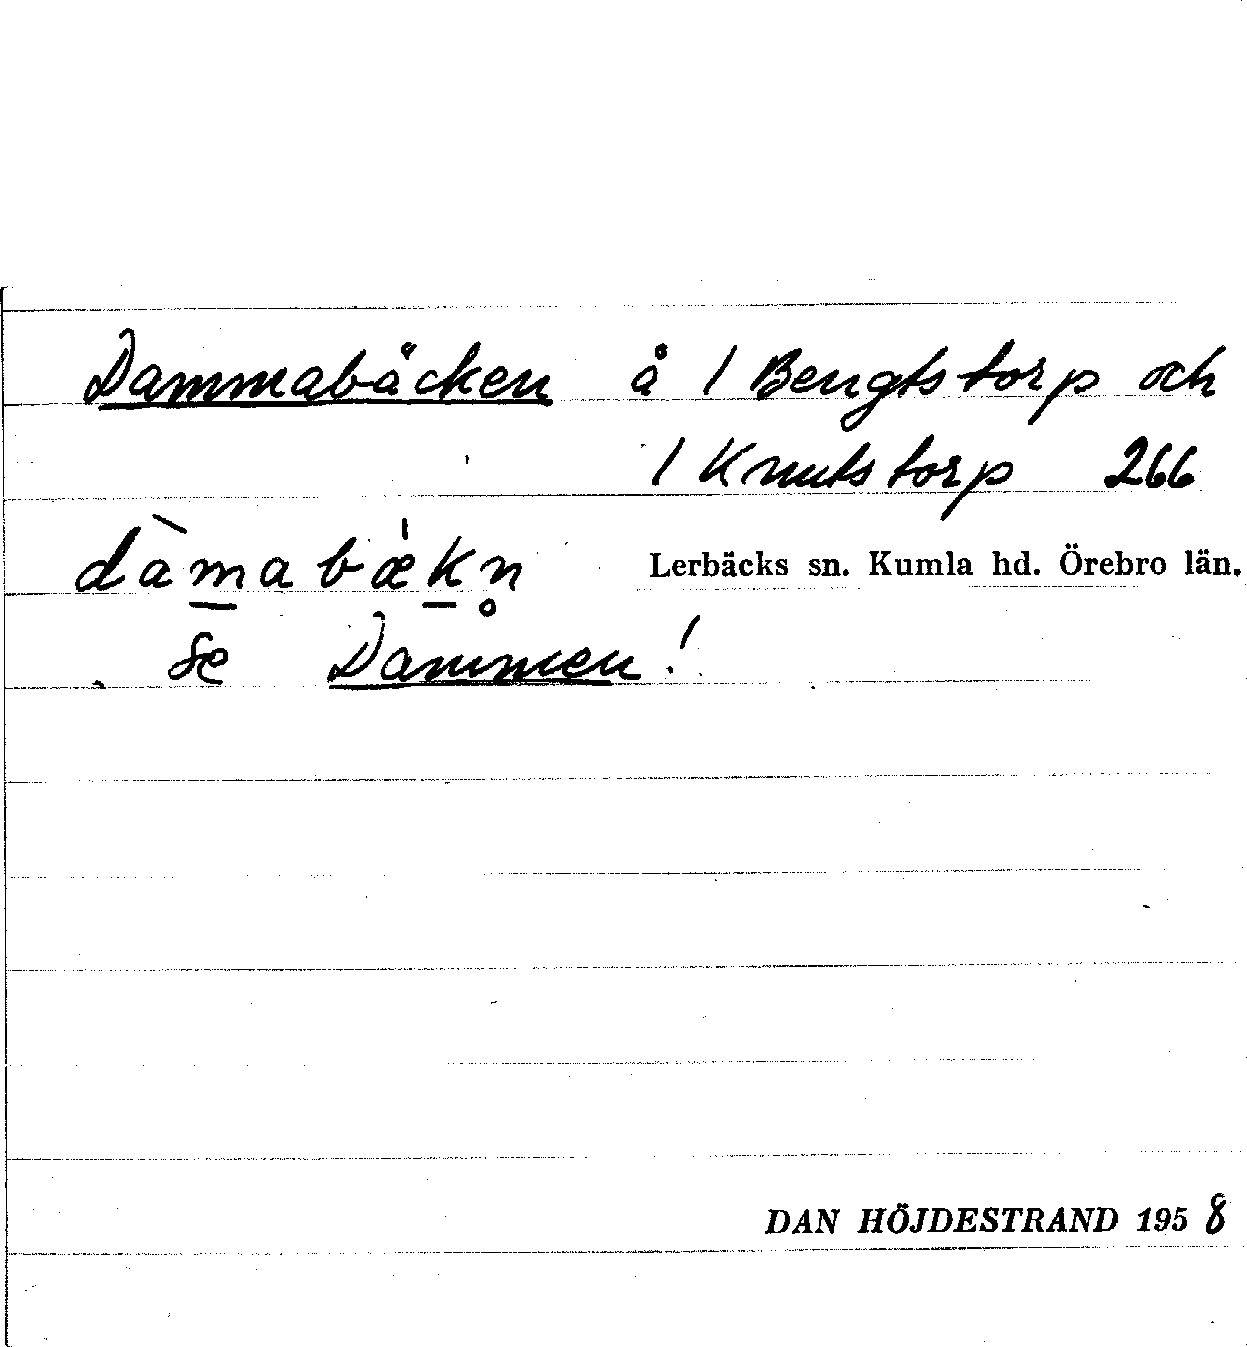 Dammabäcken å 1 Bengtstorp och
1 Knutstorp 266
dàm̲abæ̍k̲n̥ Lerbäcks sn. Kumla hd. Örebro län.
se Dammen!
DAN HÖJDESTRAND 1958